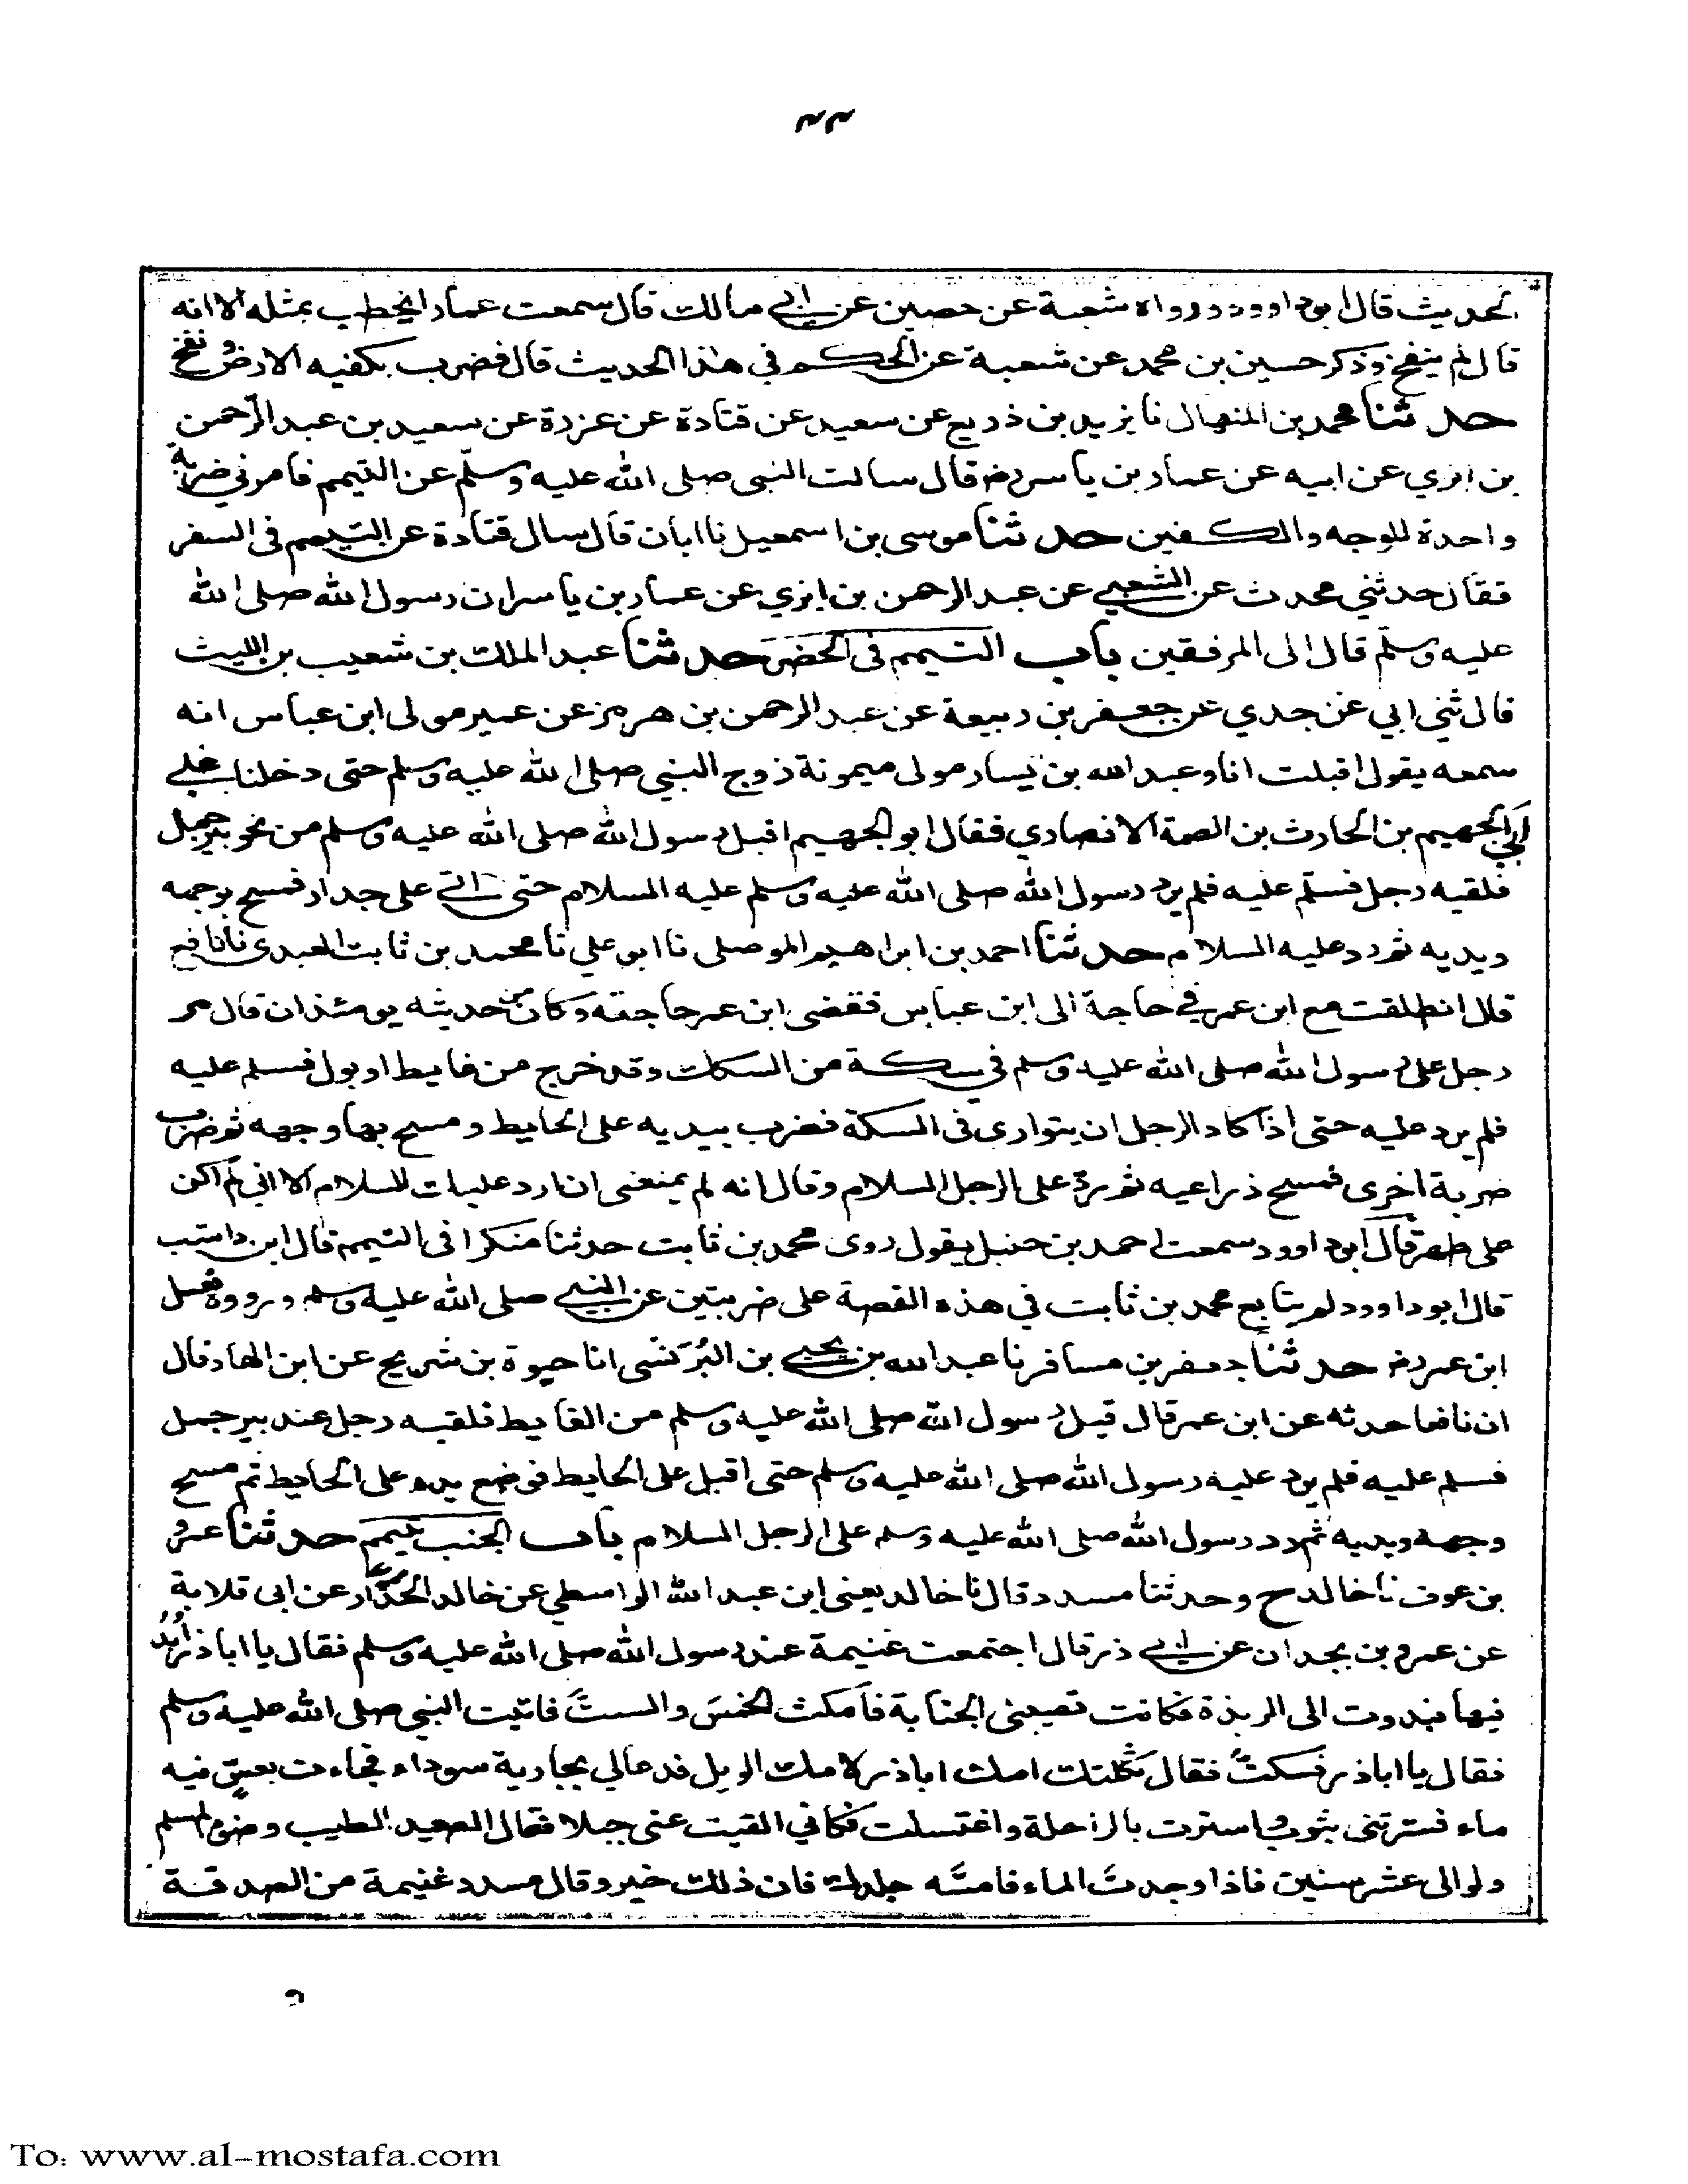 الحديث قال ابو داوود ورواه شعبة عن حصين عن ابي مالك قال سمعت عمارا يخطب بمثله الا انه
قال لم ينفخ وذكر حسين بن محمد عن شعبة عن الحكم في هذا الحديث قال فضرب بكفيه الارض ونفخ
حدثنا محمد بن المنهال نا يزيد بن زريع عن سعيد عن قتادة عن عزرة عن سعيد بن عبد الرحمن
بن ابزي عن ابيه عن عمار بن ياسر رض قال سالت النبي صلى الله عليه وسلم عن التيمم فامرني ضربة
واحدة للوجه والكفين حدثنا موسى بن اسمعيل نا ابان قال سال قتادة عن التيمم في السفر
فقال حدثني محدث عن الشعبي عن عبد الرحمن بن ابزي عن عمار بن ياسر ان رسول الله صلى الله
عليه وسلم قال الى المرفقين باب التيمم في الحضر حدثنا عبد الملك بن شعيب بن الليث
قال ثني ابي عن جدي عن جعفر بن ربيعة عن عبد الرحمن بن هرمز عن عمير مولى ابن عباس انه
سمعه يقول اقبلت انا وعبد الله بن يسار مولى ميمونة زوج النبي صلى الله عليه وسلم حتى دخلنا على
ابي الجهيم بن الحارث بن الصمة الانصاري فقال ابو الجهيم اقبل رسول الله صلى الله عليه وسلم من نحو بير جمل
فلقيه رجل فسلم عليه فلم يرد رسول الله صلى الله عليه وسلم عليه السلام حتى اتى على جدار فمسح بوجهه
ويديه ثم رد عليه السلام حدثنا احمد بن ابراهيم الموصلي نا ابو علي نا محمد بن ثابت العبدى نا نافع
قال انطلقت مع ابن عمر في حاجة الى ابن عباس فقضى ابن عمر حاجته وكان من حديثه يومئذ ان قال مر
رجل على رسول الله صلى الله عليه وسلم في سكة من السكك وقد خرج من غايط او بول فسلم عليه
فلم يرد عليه حتى اذا كاد الرجل ان يتوارى في السكة فضرب بيديه على الحايط ومسح بها وجهه ثم ضرب
ضربة اخرى فمسح ذراعيه ثم رد على الرجل السلام وقال انه لم يمنعنى ان ارد عليك السلام الا اني لم اكن
على طهر قال ابو داوود سمعت احمد بن حنبل يقول روى محمد بن ثابت حدثنا منكرا في التيمم قال ابن داسة
قال ابو داوود لم يتابع محمد بن ثابت في هذه القصة على ضربتين عن النبي صلى الله عليه وسلم ورووه فعل
ابن عمر رض حدثنا جعفر بن مسافر نا عبد الله بن يحيى بن البُرَلسى انا حيوة بن شريح عن ابن الهاد قال
ان نافعا حدثه عن ابن عمر قال قبل رسول الله صلى الله عليه وسلم من الغايط فلقيه رجل عند بير جمل
فسلم عليه فلم يرد عليه رسول الله صلى الله عليه وسلم حتى اقبل على الحايط فوضع يده على الحايط ثم مسح
وجهه ويديه ثم رد رسول الله صلى الله عليه وسلم على الرجل السلام باب الجنب يتيمم حدثنا عمرو
بن عوف نا خالد ح وحدثنا مسدد قال نا خالد يعنى ابن عبد الله الواسطي عن خالد الحذّاء عن ابى قلابة
عن عمرو بن بجدان عن ابي ذر قال اجتمعت غنيمة عند رسول الله صلى الله عليه وسلم فقال يا ابا ذر اُبْدُ
فيها فبدوت الى الربذة فكانت تصيبنى الجنابة فامكث الخمسَ والستَّ فاتيت النبي صلى الله عليه وسلم
فقال يا ابا ذر فسكتُّ فقال ثكلتك امك ابا ذر لامك الويل فدعا لي بجارية سوداء فجاءت بعسٍّ فيه
ماء فسترتنى بثوب واسترت بالراحلة واغتسلت فكاني القيت عنى جبلا فقال الصعيد الطيب وضوء المسلم
ولو الى عشر سنين فاذا وجدتَ الماء فامسَّه جلدك فان ذلك خير وقال مسدد غنيمة من الصدقة
To: www.al-mostafa.com